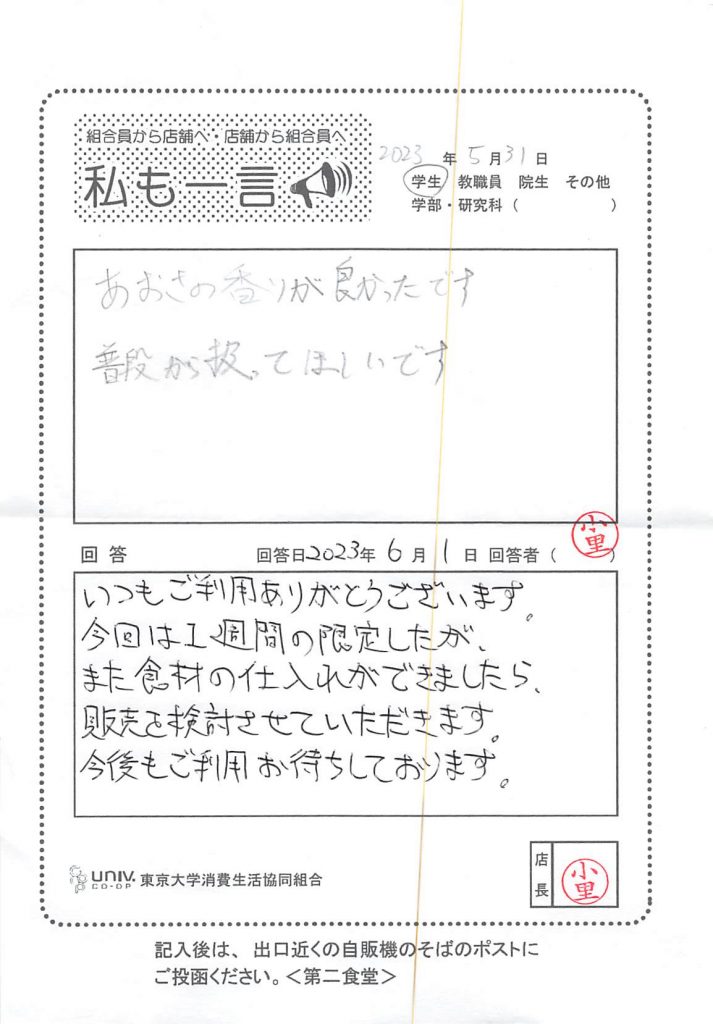 組合員から店舗へ・店舗から組合員へ
私も一言
2023 年 5 月 31 日
学生 教職員 院生 その他
学部・研究科 ( )
あおさの香りが良かったです
普段から扱ってほしいです
回答 回答日 2023年 6 月 1 日 回答者 ( 小里 )
いつもご利用ありがとうございます。
今回は1週間の限定したが、
また食材の仕入れができましたら、
販売を検討させていただきます。
今後もご利用お待ちしております。
UNIV. CO-OP 東京大学消費生活協同組合
店長 小里
記入後は、出口近くの自販機のそばのポストに
ご投函ください。<第二食堂>